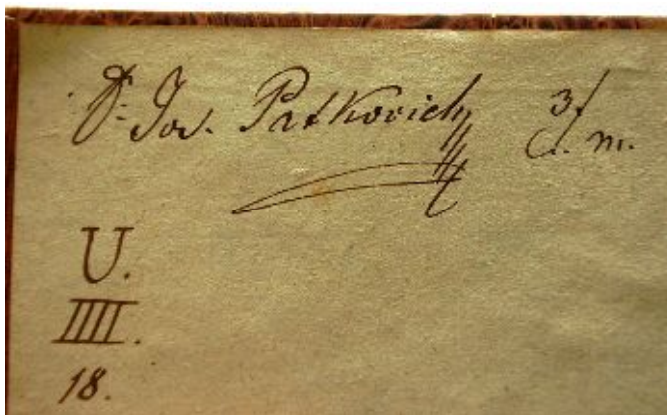 Dr. Jos. Petkovich 3f
C. m.
U.
IIII.
18.